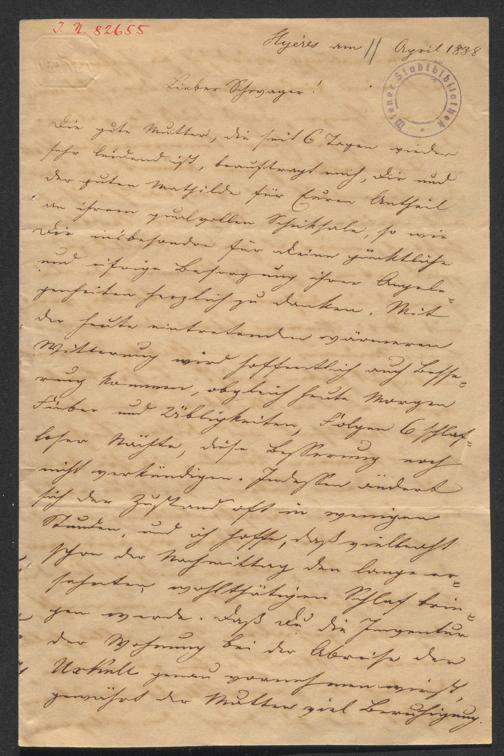 J. N. 82655
Wiener Stadtbibliothek
Hyères am 11 April 1888
Lieber Schwager!
Die gute Mutter, die seit 6 Tagen wieder
sehr leidend ist, beauftragt mich, Dir und
der guten Mathilde für Euren Antheil
an ihrem qualvollen Schiksale, so wie
Dir insbesondre für Deine pünktliche
und eifrige Besorgung ihrer Angele-
genheiten herzlich zu danken. Mit
der heute eintretenden wärmeren
Witterung wird hoffentlich auch Besse-
rung kommen, obgleich heute Morgen
Fieber und Übligkeiten, Folgen 6 schlaf-
loser Nächte, diese Besserung noch
nicht verkündigen. Indessen ändert
sich der Zustand oft in wenigen
Stunden, und ich hoffe, daß vielleicht
schon der Nachmittag den lange er-
sehnten, wohlthätigen Schlaf brin-
gen werde. Daß Du die Inventur
der Wohnung bei der Abreise der
Uxkull genau vornehmen wirst,
gewährt der Mutter viel Beruhigung.